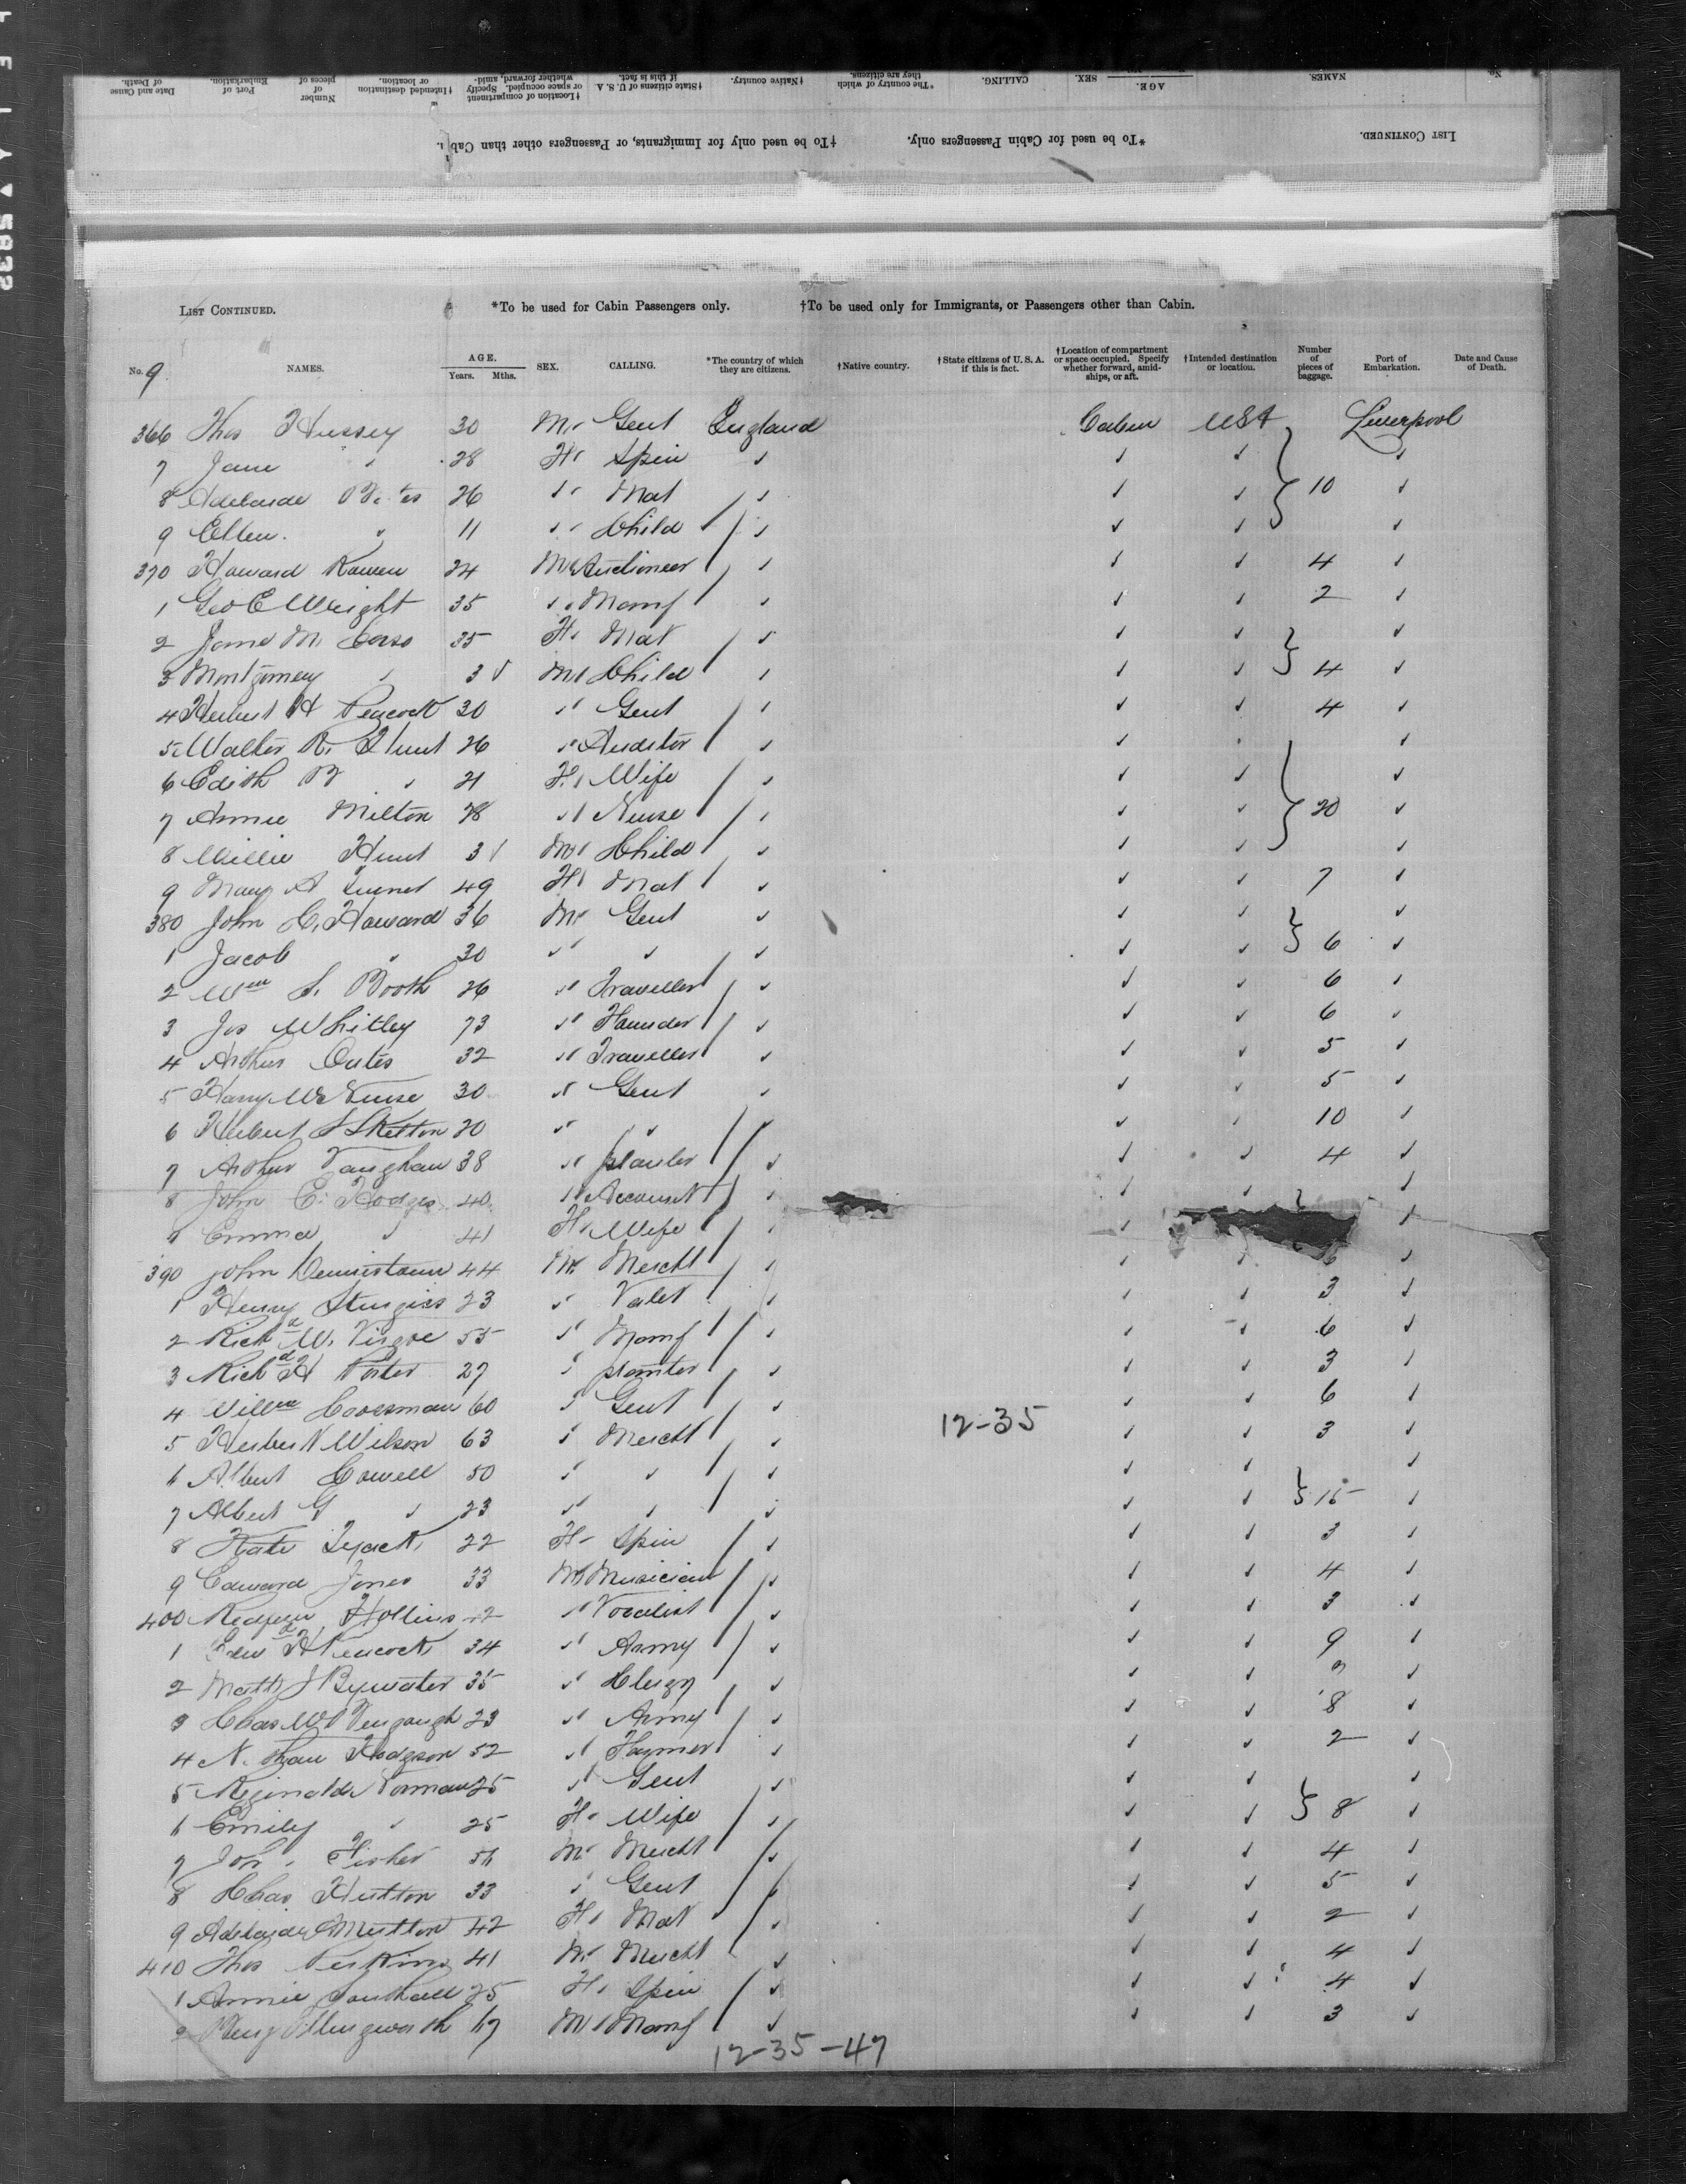 LIST CONTINUED. *To be used for Cabin Passengers only. †To be used only for Immigrants, or Passengers other than Cab
No. NAMES. AGE. SEX. CALLING. *The country of which they are citizens. †Native country. †State citizens of U.S.A. if this is fact. †Location of compartment or space occupied. Specify whether forward, amid- †Intended destination or location. Number of pieces of Port of Embarkation. Date and Cause of Death.
LIST CONTINUED. *To be used for Cabin Passengers only. †To be used only for Immigrants, or Passengers other than Cabin.
No. 9 NAMES. AGE. Years. Mths. SEX. CALLING. *The country of which they are citizens. †Native country. †State citizens of U.S.A. if this is fact. †Location of compartment or space occupied. Specify whether forward, amid-ships, or aft. †Intended destination or location. Number of pieces of baggage. Port of Embarkation. Date and Cause of Death.
366 Thos Hussey 30 M Gent England Cabin USA Liverpool
7 Jane 28 F Spin
8 Adelaide 26 Mat 10
9 Ellen 11 Child
370 Howard 24 M Auctioneer 4
1 Geo E Wright 35 Manf 2
2 35 F Mat
3 Montgomery 3 M Child 4
4 Herbert H Peacock 30 Gent 4
5 Walter R. Hunt 26 Auditor
6 Edith B 21 F Wife
7 Annie Milton 28 Nurse 20
8 Willie Hunt 3 M Child
9 Mary A Turner 49 F Mat 7
380 John C. Howard 36 M Gent
1 Jacob 30 6
2 Wm S. Booth 26 Traveller 6
3 Jos Whitley 73 Founder 6
4 Arthur Oates 32 Traveller 5
5 Harry 30 Gent 5
6 Herbert S Skelton 20 10
7 Arthur Vaughan 38 planter 4
8 John E. Hodges 40 Accountt
9 Emma 41 F Wife
390 John Dennistoun 44 M Mercht 6
1 Henry Sturgiss 23 Valet 3
2 Richd W. Virgoe 55 Manf 6
3 Richd H Porter 27 planter 3
4 60 Gent 6
5 Herbert Wilson 63 Mercht 12-35 3
6 Albert Cowell 50
7 Albert G 23 15
8 Kate Tyack 22 F Spin 3
9 Edward Jones 33 M Musician 4
400 Redfern Hollins Vocalist 3
1 Edwd H Peacock 34 Army 9
2 Matth J Bywater 35 Clergy
3 Chas W 23 Army 8
4 N. Hodgson 52 Farmer 2
5 Reginald Norman 25 Gent
6 Emily 25 F Wife 8
7 Fisher M Mercht 4
8 Chas Hutton 33 Gent 5
9 Adelaide Mutton 42 F Mat 2
410 Thos Perkins 41 M Mercht 4
1 Annie Southall 25 F Spin 4
2 Illingworth M Manf 3
12-35-47